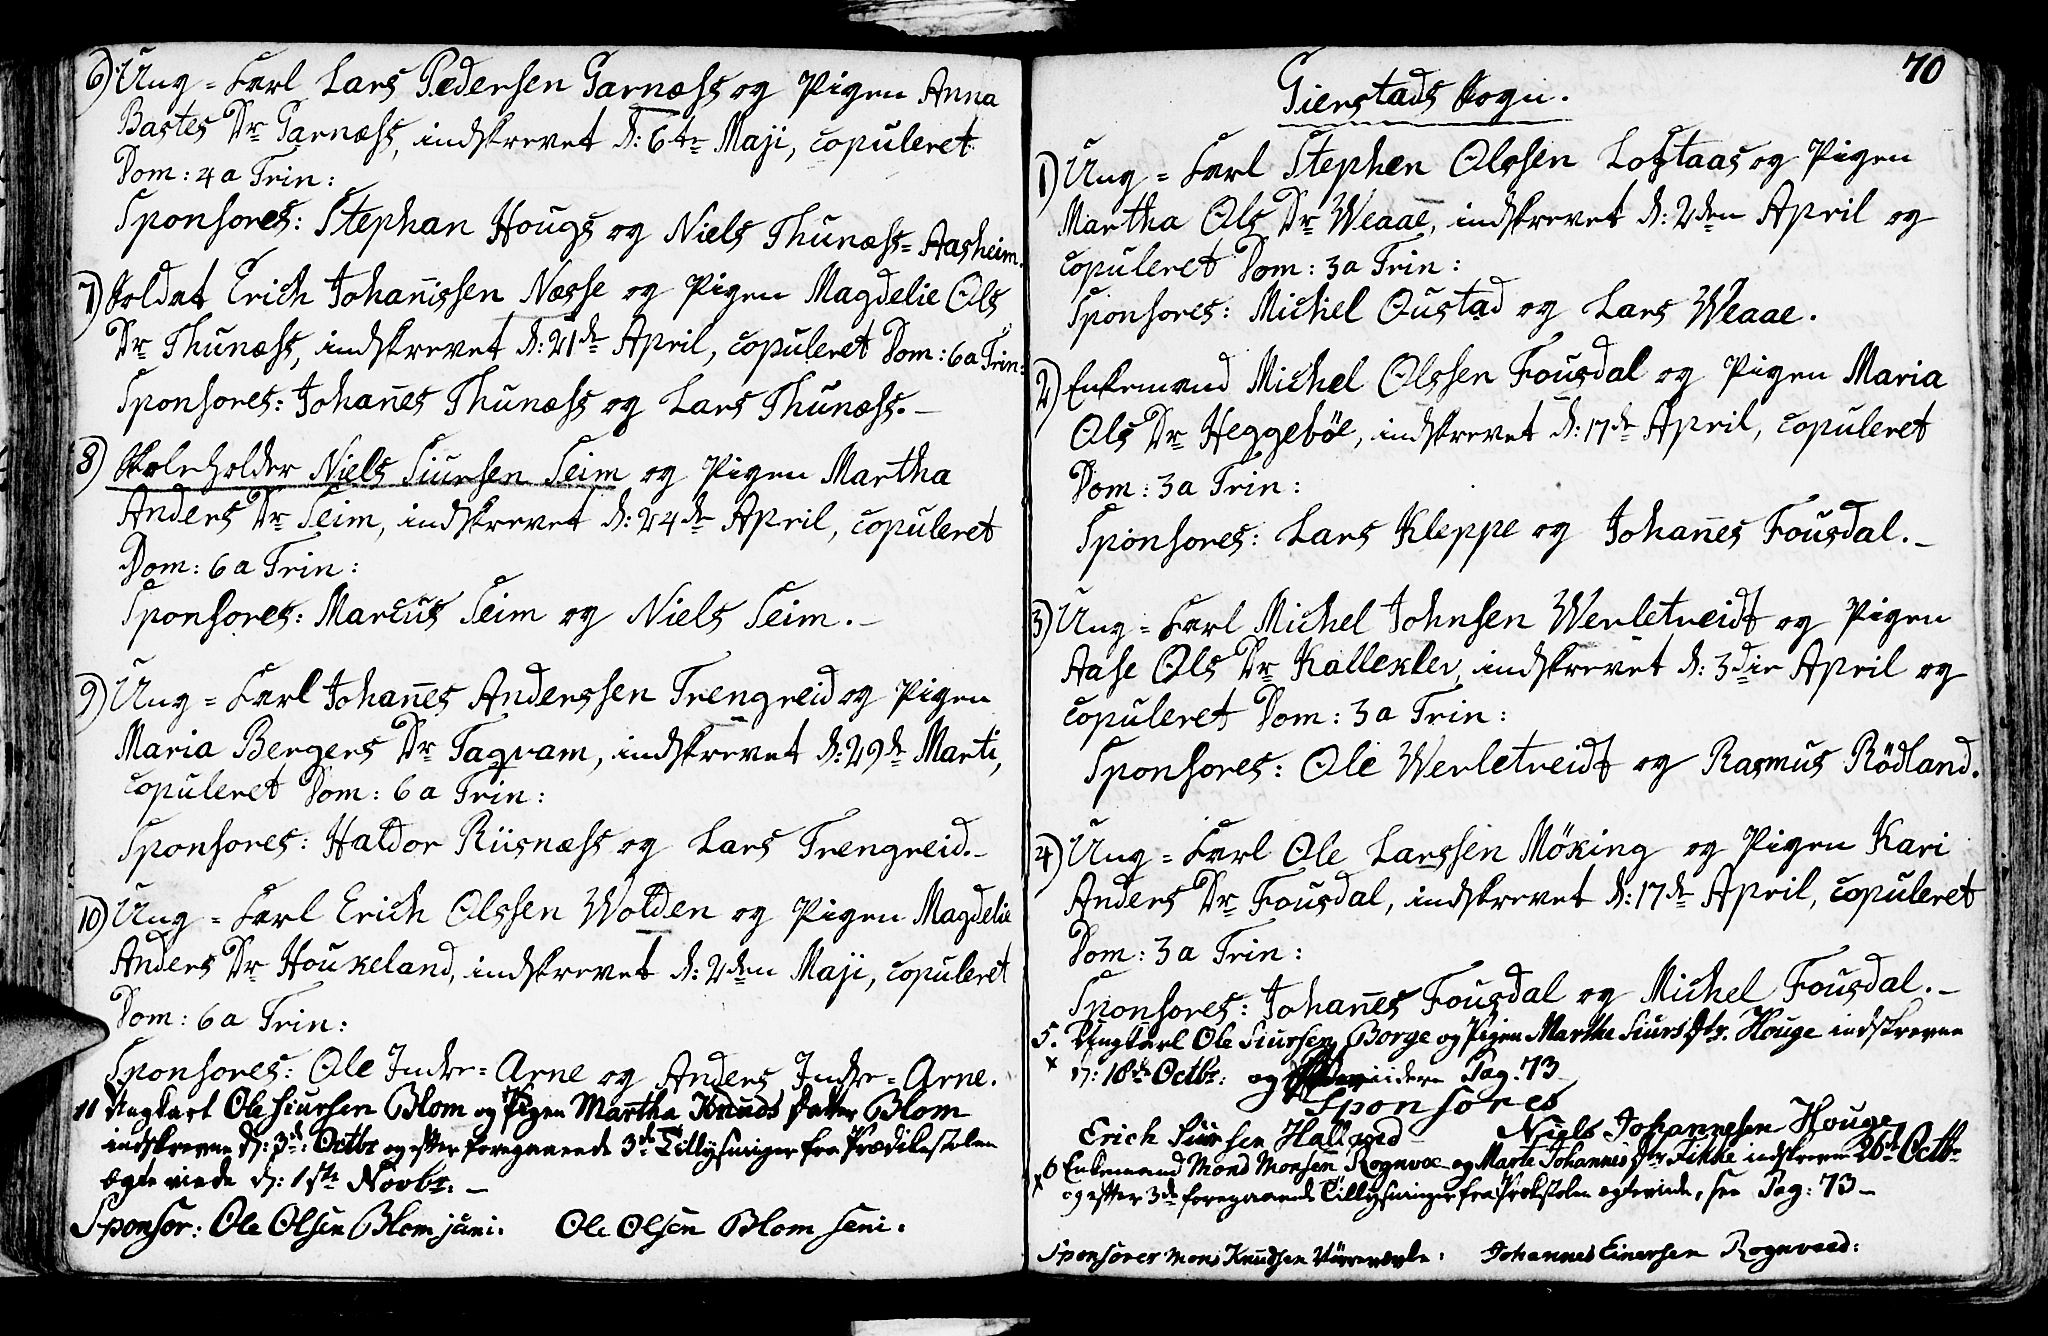 6) Ung-Karl Lars Pedersen Garnæss og Pigen Anna
Bastes Dr Garnæss, indskrevet d: 6te Maji, copuleret
Dom: 4a Trin:
Sponsores: Stephan Hougs og Niels Thunæss-Aasheim.
7) Soldat Erich Johanissen Næsse og Pigen Magdelie Ols
Dr Thunæss, indskrevet d: 21de April, copuleret Dom: 6a Trin:
Sponsores: Johañes Thunæss og Lars Thunæss.-
8) Skoleholder Niels Siursen Seim og Pigen Martha
Anders Dr Seim, indskrevet d: 24de April, copuleret
Dom: 6a Trin:
Sponsores: Marcus Seim og Niels Seim.-
9) Ung-Karl Johañes Anderssen Trengreid og Pigen
Maria Bergers Dr Taqvam, indskrevet d: 29de Marti,
copuleret Dom: 6a Trin:
Sponsores: Haldor Riisnæss og Lars Trengreid.-
10) Ung-Karl Erich Olssen Wolden og Pigen Magdelie
Anders Dr Houkeland, indskrevet d: 2den Maji, copuleret
Dom: 6a Trin:
Sponsores: Ole Indre-Arne og Anders Indre-Arne.
11 Ungkarl Ole Siursen Blom og Pigen Martha Knuds Datter Blom
indskreven d: 3de: Octbr og efter foregaaende 3de Tillysninger fra Prædikestolen
ægte viede d: 1ste Novbr: -
Sponsor: Ole Olsen Blom juni. Ole Olsen Blom seni.
70
Gierstads Sogn.
1) Ung-Karl Stephen Olssen Loftaas og Pigen
Martha Ols Dr Weaae, indskrevet d: 2den April og
copuleret Dom: 3a Trin:
Sponsores: Michel Oustad og Lars Weaae.
2) Enkemand Michel Olssen Fousdal og Pigen Maria
Ols Dr Heggeböe, indskrevet d: 17de April, copuleret
Dom: 3a Trin:
Sponsores: Lars Kleppe og Johañes Fousdal.-
3) Ung-Karl Michel Johnsen Werletveidt og Pigen
Aase Ols Dr Kalleklev, indskrevet d: 3die April og
copuleret Dom: 3a Trin:
Sponsores: Ole Werletveidt og Rasmus Rödland.
4) Ung-Karl Ole Larssen Möking og Pigen Kari
Anders Dr Fousdal, indskrevet d: 17de April, copuleret
Dom: 3a Trin:
Sponsores: Johañes Fousdal og Michel Fousdal.-
5. Ungkarl Ole Siursen Borge og Pigen Martha Siurs Dtr. Houge indskreven
x d: 18de Octbr: og videre Pag. 73
Sponsores
Erich Siursen Halland Niels Johannesen Houge
x 6 Enkemand Mons Monsen Rognvoe og Marte Johannes Dtr Fikke indskreven 26de Octbr
og efter 3de foregaaende Tillysninger fra Prækstolen ægteviede, see Pag: 73-
Sponsorer Mons Knudsen Johannes Einersen Rognvoed: